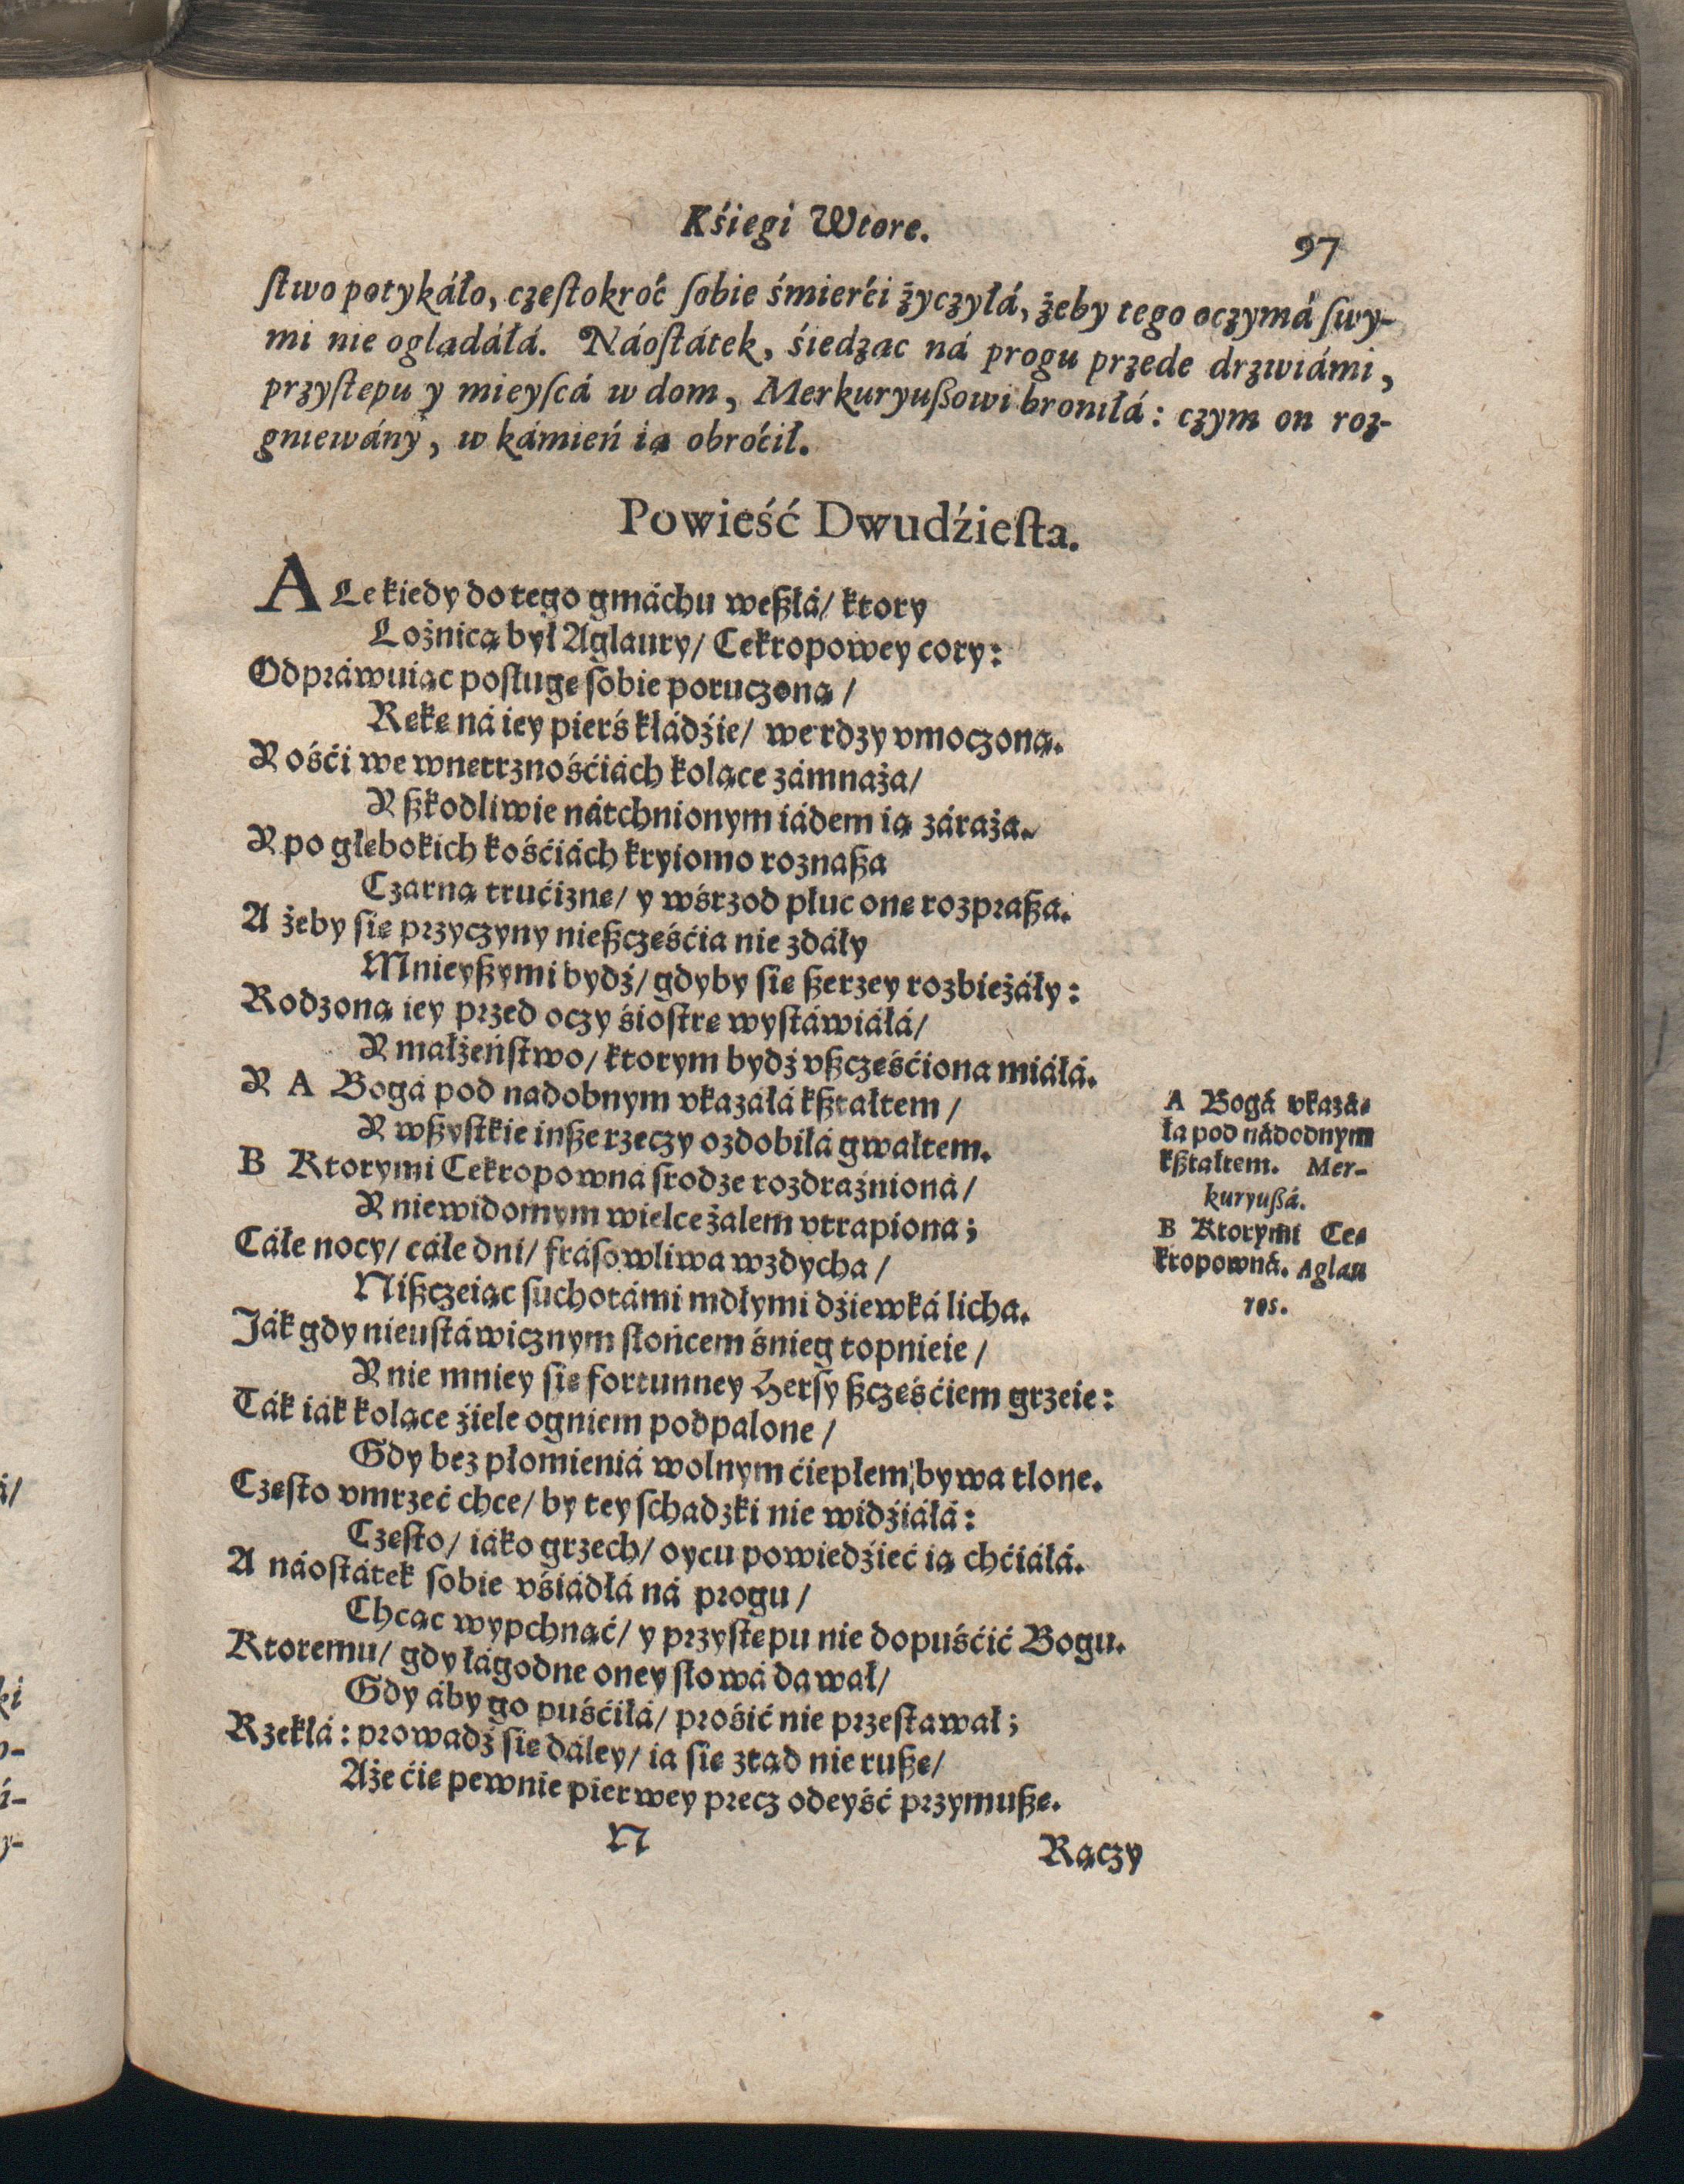 Kśięgi Wtore.
97
ſtwo potykáło, częſtokroć ſobie śmierći życzyłá, żeby tego oczymá ſwy-
mi nie oglądáłá. Náoſtátek, śiedząc ná progu przede drzwiámi,
przyſtępu y mieyſcá w dom, Merkuryußowi broniłá: czym on roz-
gniewány, w kámień ią obroćił.
Powieść Dwudźieſta.
ALe kiedy do tego gmáchu weßłá/ ktory
Lożnicą był Aglaury/ Cekropowey cory:
Odpráwuiąc poſługę ſobie poruczoną/
Rękę ná iey pierś kłádźie/ we rdzy vmoczoną.
Y ośći we wnętrznośćiách kolące zámnaża/
Y ßkodliwie nátchnionym iádem ią záraża.
Y po głębokich kośćiách kryiomo roznaßa
Czarną trućiznę/ y wśrzod płuc onę rozpraßa.
A żeby się przyczyny nießczęśćia nie zdáły
Mnieyßymi bydź/ gdyby się ßerzey rozbieżáły:
Rodzoną iey przed oczy śioſtrę wyſtáwiáłá/
Y małżeńſtwo/ ktorym bydź vßczęśćiona miáłá.
Y A Bogá pod nadobnym vkazałá kßtałtem/
Y wßyſtkie inße rzeczy ozdobiłá gwałtem.
B Ktorymi Cekropowná ſrodze rozdraźnioná/
Y niewidomym wielce żalem vtrapiona;
Cáłe nocy/ cáłe dni/ fráſowliwa wzdycha/
Nißczeiąc ſuchotámi mdłymi dźiewká licha.
Ják gdy nieuſtáwicznym słońcem śnieg topnieie/
Y nie mniey się fortunney Herſy ßczęśćiem grzeie:
Ták iák kolące źiele ogniem podpalone/
Gdy bez płomieniá wolnym ćiepłem bywa tlone.
Częſto vmrzeć chce/ by tey ſchadzki nie widźiáłá:
Częſto/ iáko grzech/ oycu powiedźieć ią chćiáłá.
A náoſtátek ſobie vśiádłá ná progu/
Chcąc wypchnąć/ y przyſtępu nie dopuśćić Bogu.
Ktoremu/ gdy łágodne oney słowá dawał/
Gdy áby go puśćiłá/ prośić nie przeſtawał;
Rzekłá: prowadź się dáley/ ia się ztąd nie rußę/
Aże ćię pewnie pierwey precz odeyść przymußę.
N
Rączy
A Bogá vkazá-
ła pod nádodnym
kßtałtem. Mer-
kuryußá.
B Ktorymi Ce-
kropowná. Aglau
ros.